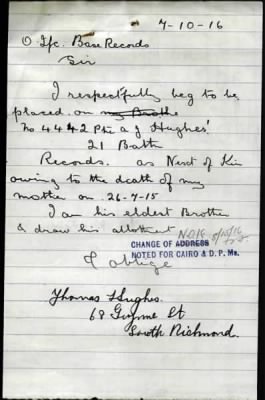 7-10-16
O Ifc. Base Records
Sir
I respectfully beg to be
placed on my Brothe
No 4442 Pte A J Hughes'
21 Battn
Records. as Next of Kin
owing to the death of my
mother on 26-7-15
I am his eldest Brother
& draw his allotment
N.O.K
CHANGE OF ADDRESS
NOTED FOR CAIRO & D. P. Ms.
& oblige
Thomas Hughes.
68 Gwynne St
South Richmond.